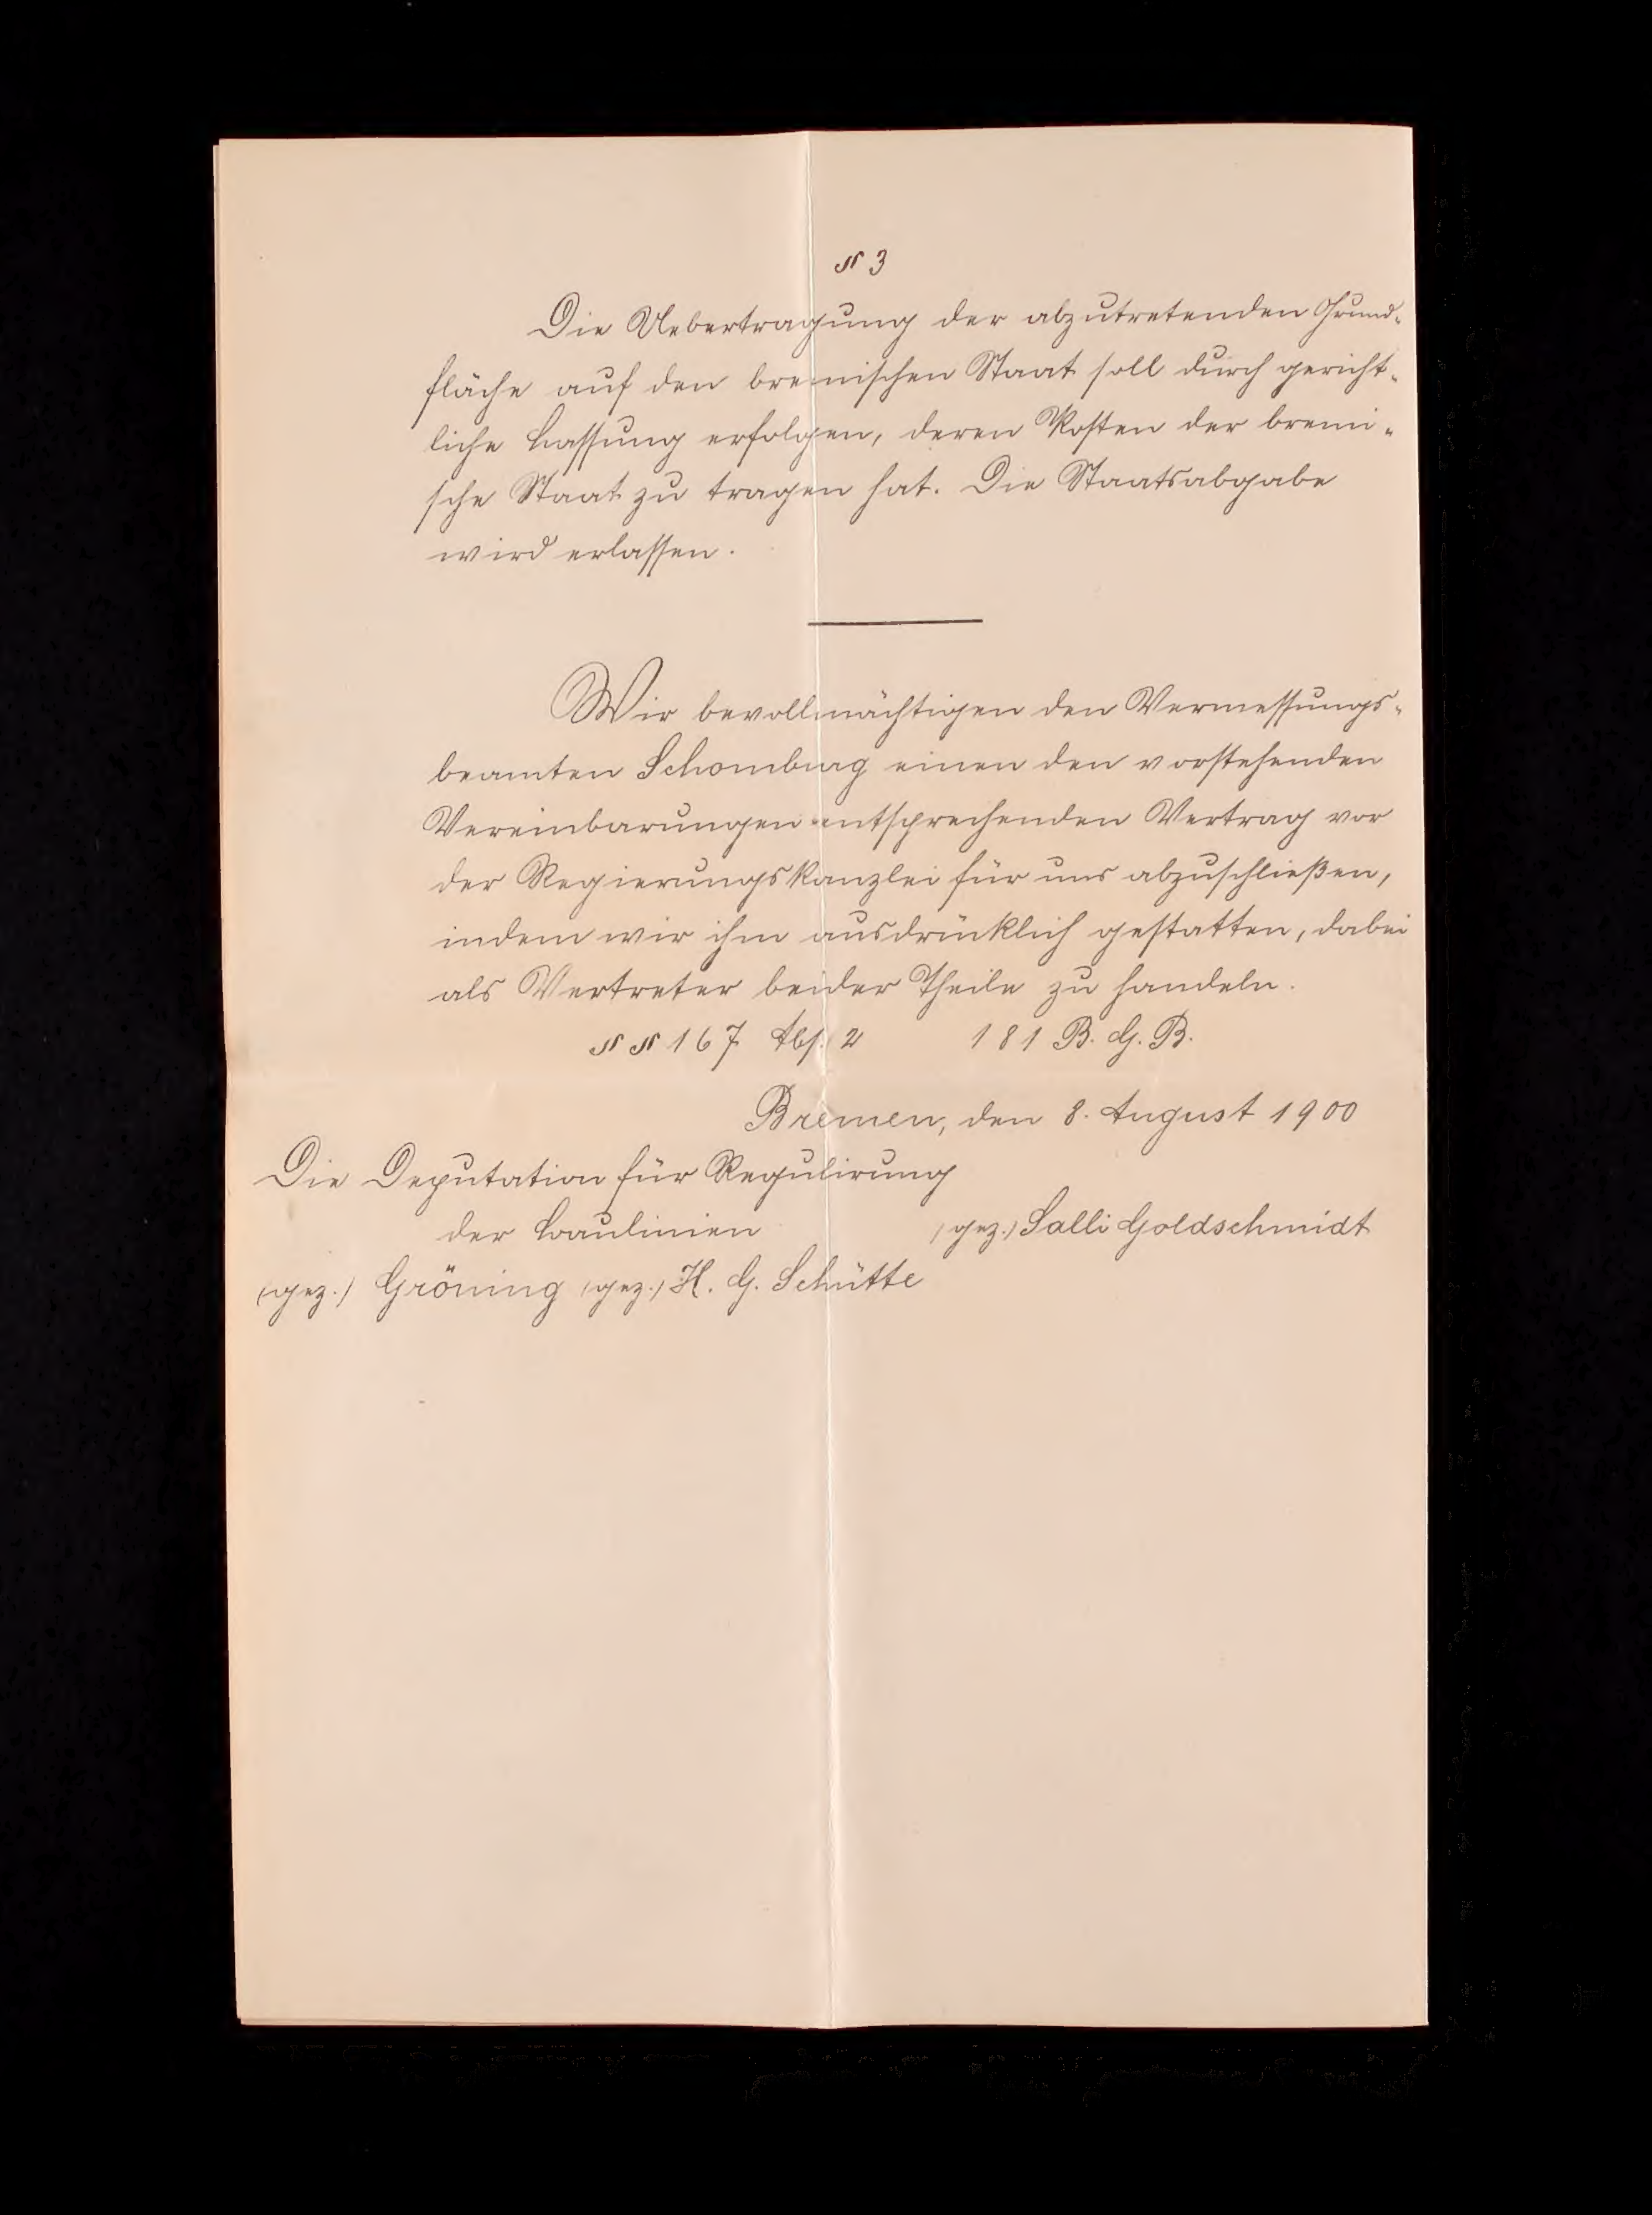 § 3
Die Uebertragung der abzutretenden Grund-
fläche auf den bremischen Staat soll durch gericht-
liche Lassung erfolgen, deren Kosten der bremi-
sche Staat zu tragen hat. Die Staatsabgabe
wird erlassen.
Wir bevollmächtigen den Vermessungs-
beamten Schomburg einen den vorstehenden
Vereinbarungen entsprechenden Vertrag vor
der Regierungskanzlei für uns abzuschließen,
indem wir ihm ausdrücklich gestatten, dabei
als Vertreter beider Theile zu handeln.
§ § 167 Abs. 2 181 B. G. B.
Bremen, den 8. August 1900
Die Deputation für Regulirung
der Baulinien
(gez.) Salli Goldschmidt
(gez.) Gröning (gez.) H. G. Schütte